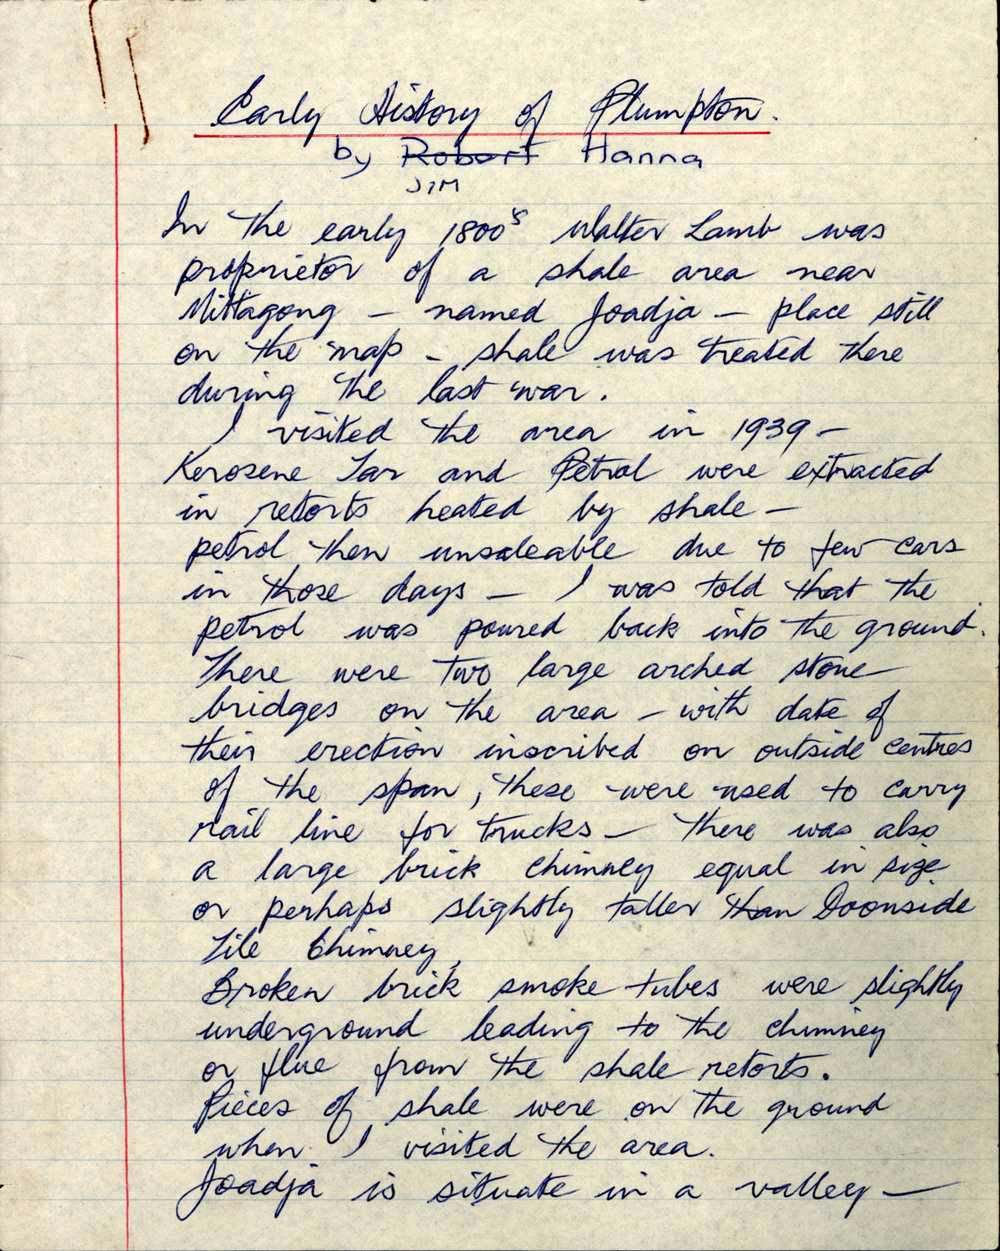 Early History of Plumpton.
by Robert Hanna
JIM
In the early 1800's Walter Lamb was
proprietor of a shale area near
Mittagong - named Joadja - place still
on the map - shale was treated there
during the last war.
I visited the area in 1939 -
Kerosene Tar and Petrol were extracted
in retorts heated by shale -
petrol then unsaleable due to few cars
in those days - I was told that the
petrol was poured back into the ground.
There were two large arched stone
bridges on the area - with date of
their erection inscribed on outside centres
of the span, these were used to carry
rail line for trucks - there was also
a large brick chimney equal in size
or perhaps slightly taller than Doonside
Tile Chimney,
Broken brick smoke tubes were slightly
underground leading to the chimney
or flue from the shale retorts.
Pieces of shale were on the ground
when I visited the area.
Joadja is situate in a valley -